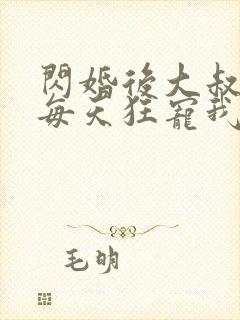 閃婚後大叔
每天狂寵我
毛明